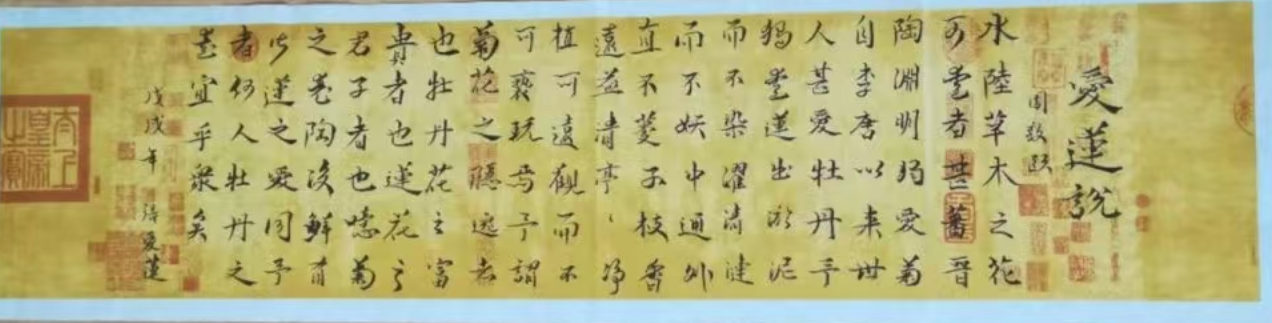 愛蓮說
周敦頤
水陸草木之花
可愛者甚蕃晉
陶淵明獨愛菊
自李唐以来世
人甚愛牡丹予
獨愛蓮出淤泥
而不染濯清漣
而不妖中通外
直不蔓不枝香
遠益清亭〻净
植可遠觀而不
可褻玩焉予謂
菊花之隱逸者
也牡丹花之富
貴者也蓮花之
君子者也噫菊
之愛陶後鮮有
聞蓮之愛同予
者何人牡丹之
愛宜乎衆矣
戊戌年 張愛蓮
太上皇帝之寶